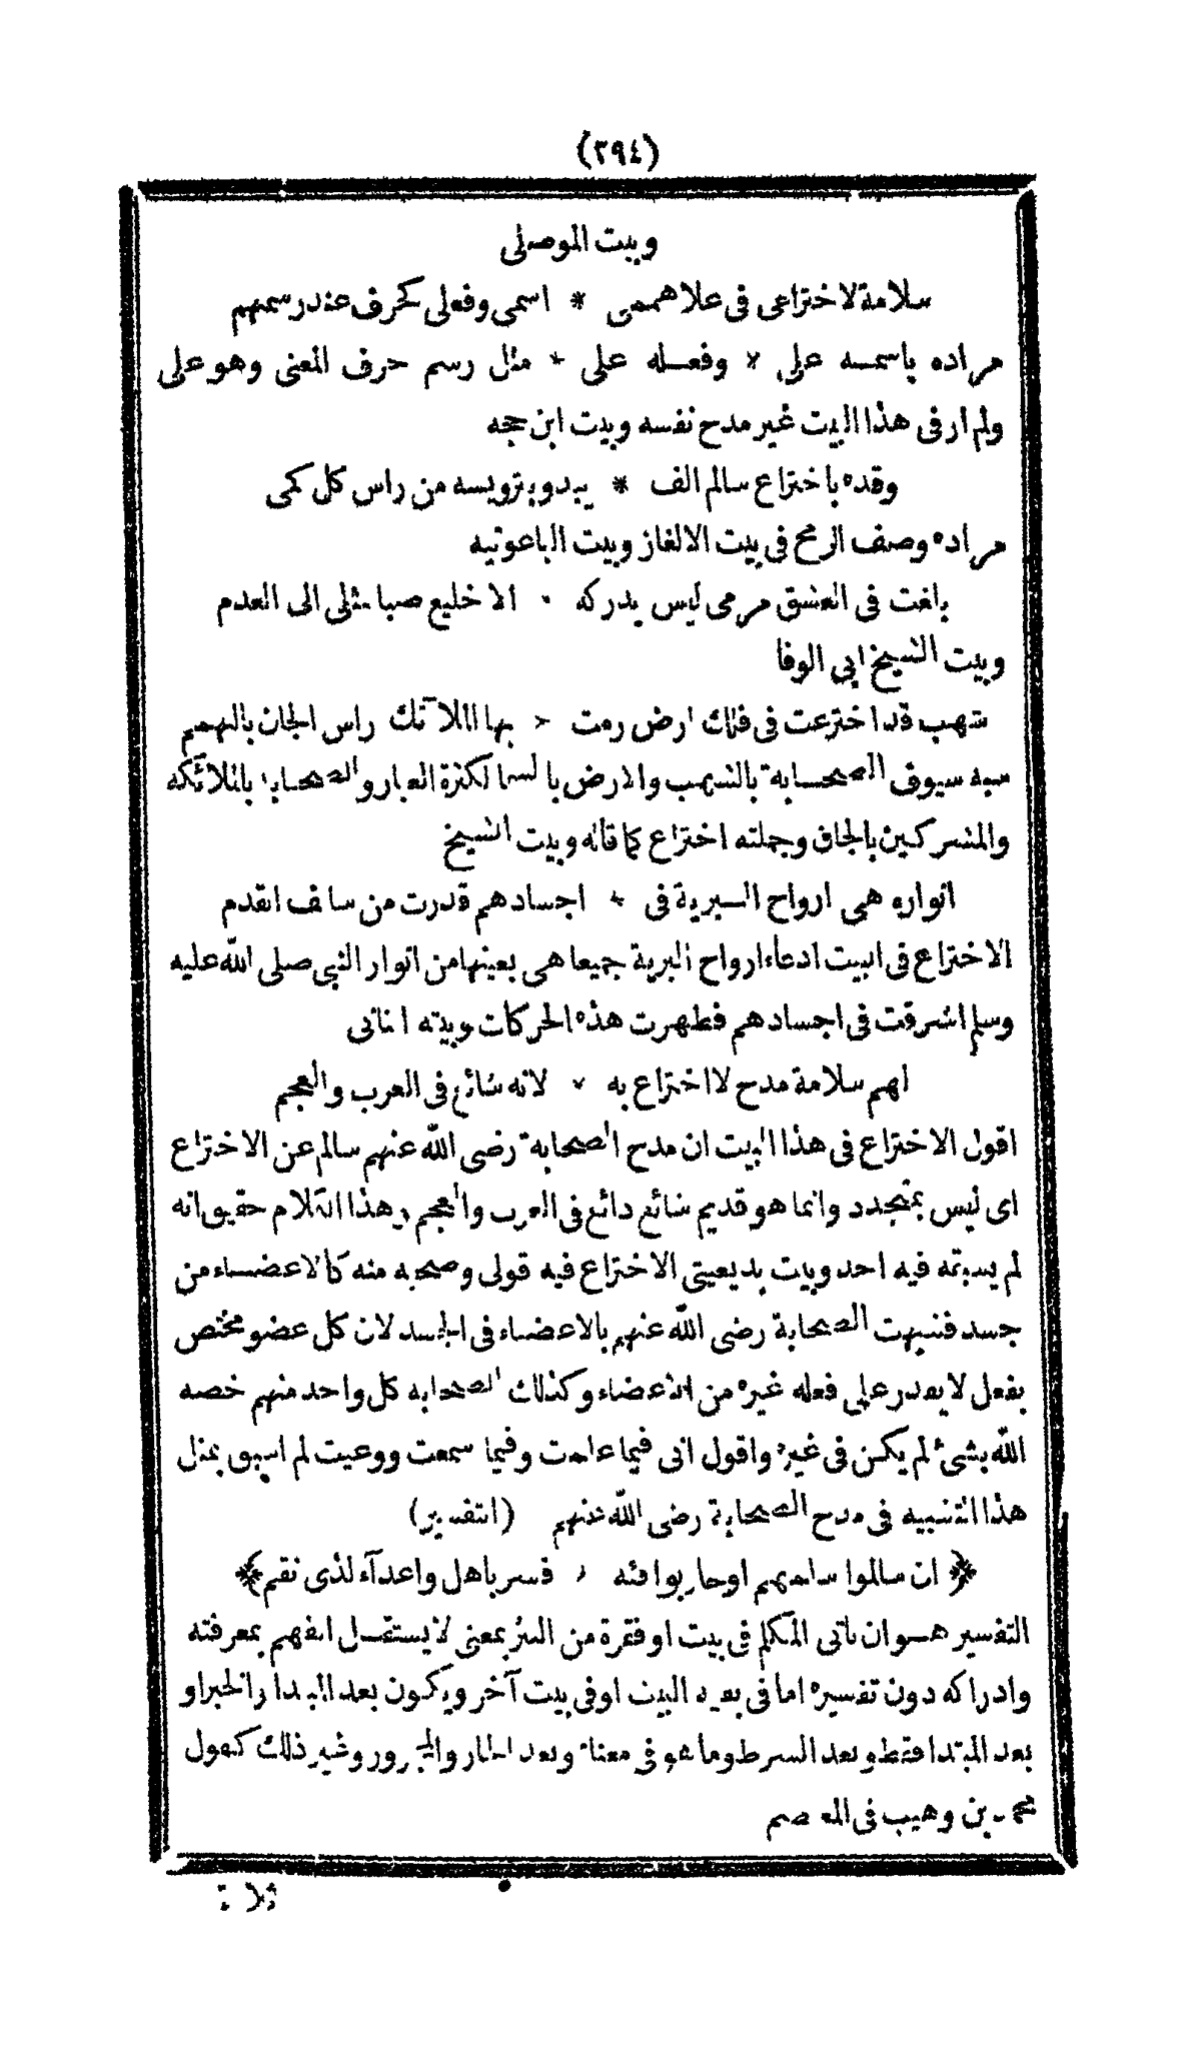 (٢٩٤)
وبيت الموصلى
سلامة لاختراعى فى علا هممى * اسمى وفعلى كحرف عند رسمهم
مراده باسمه على * وفعله على * مثل رسم حرف المعنى وهو على
ولم ار فى هذا البيت غير مدح نفسه وبيت ابن حجه
وقده باختراع سالم الف * يبدو بترويسه من راس كل كمى
مراده وصف الرمح فى بيت الالغاز وبيت الباعونيه
بلغت فى العشق مرمى ليس يدركه * الا خليع صبا مثلى الى العدم
وبيت الشيخ ابى الوفا
شهب قد اخترعت فى فلك ارض رمت * بها الملآئك راس الجان بالهمم
شبه سيوف الصحابة بالشهب والارض بالسما لكثرة الغبار والصحابة بالملآئكه
والمشركين بالجان وجملته اختراع كما قاله وبيت الشيخ
انواره هى ارواح السبرية فى * اجسادهم قدرت من سالف القدم
الاختراع فى البيت ادعاء ارواح البرية جميعا هى بعينها من انوار النبى صلى الله عليه
وسلم اشرقت فى اجسادهم فظهرت هذه الحركات وبيته الثانى
لهم سلامة مدح لا اختراع به * لانه شائع فى العرب والعجم
اقول الاختراع فى هذا البيت ان مدح الصحابة رضى الله عنهم سالم عن الاختراع
اى ليس بمتجدد وانما هو قديم شائع دائع فى العرب والعجم وهذا الكلام حقيق انه
لم يسبقه فيه احد وبيت بديعيتى الاختراع فيه قولى وصحبه منه كالاعضاء من
جسد فشبهت الصحابة رضى الله عنهم بالاعضاء فى الجسد لان كل عضو مختص
بفعل لا يقدر على فعله غيره من الاعضاء وكذلك الصحابه كل واحد منهم خصه
الله بشئ لم يكن فى غيره واقول انى فيما علمت وفيما سمعت ووعيت لم اسبق بمثل
هذا التشبيه فى مدح الصحابة رضى الله عنهم (التفسير)
﴿ان سالموا سلمهم او حاربوا فئه * فسر باهل واعدآء لذى نقم﴾
التفسير هو ان ياتى المتكلم فى بيت او فقرة من النثر بمعنى لا يستقل الفهم بمعرفته
وادراكه دون تفسيره اما فى بقية البيت او فى بيت آخر ويكون بعد المبتدا والخبر او
بعد المبتدا فقط وبعد الشرط وما هو فى معناه وبعد الجار والمجرور وغير ذلك كقول
محمد بن وهيب فى المعتصم
ثلاثة